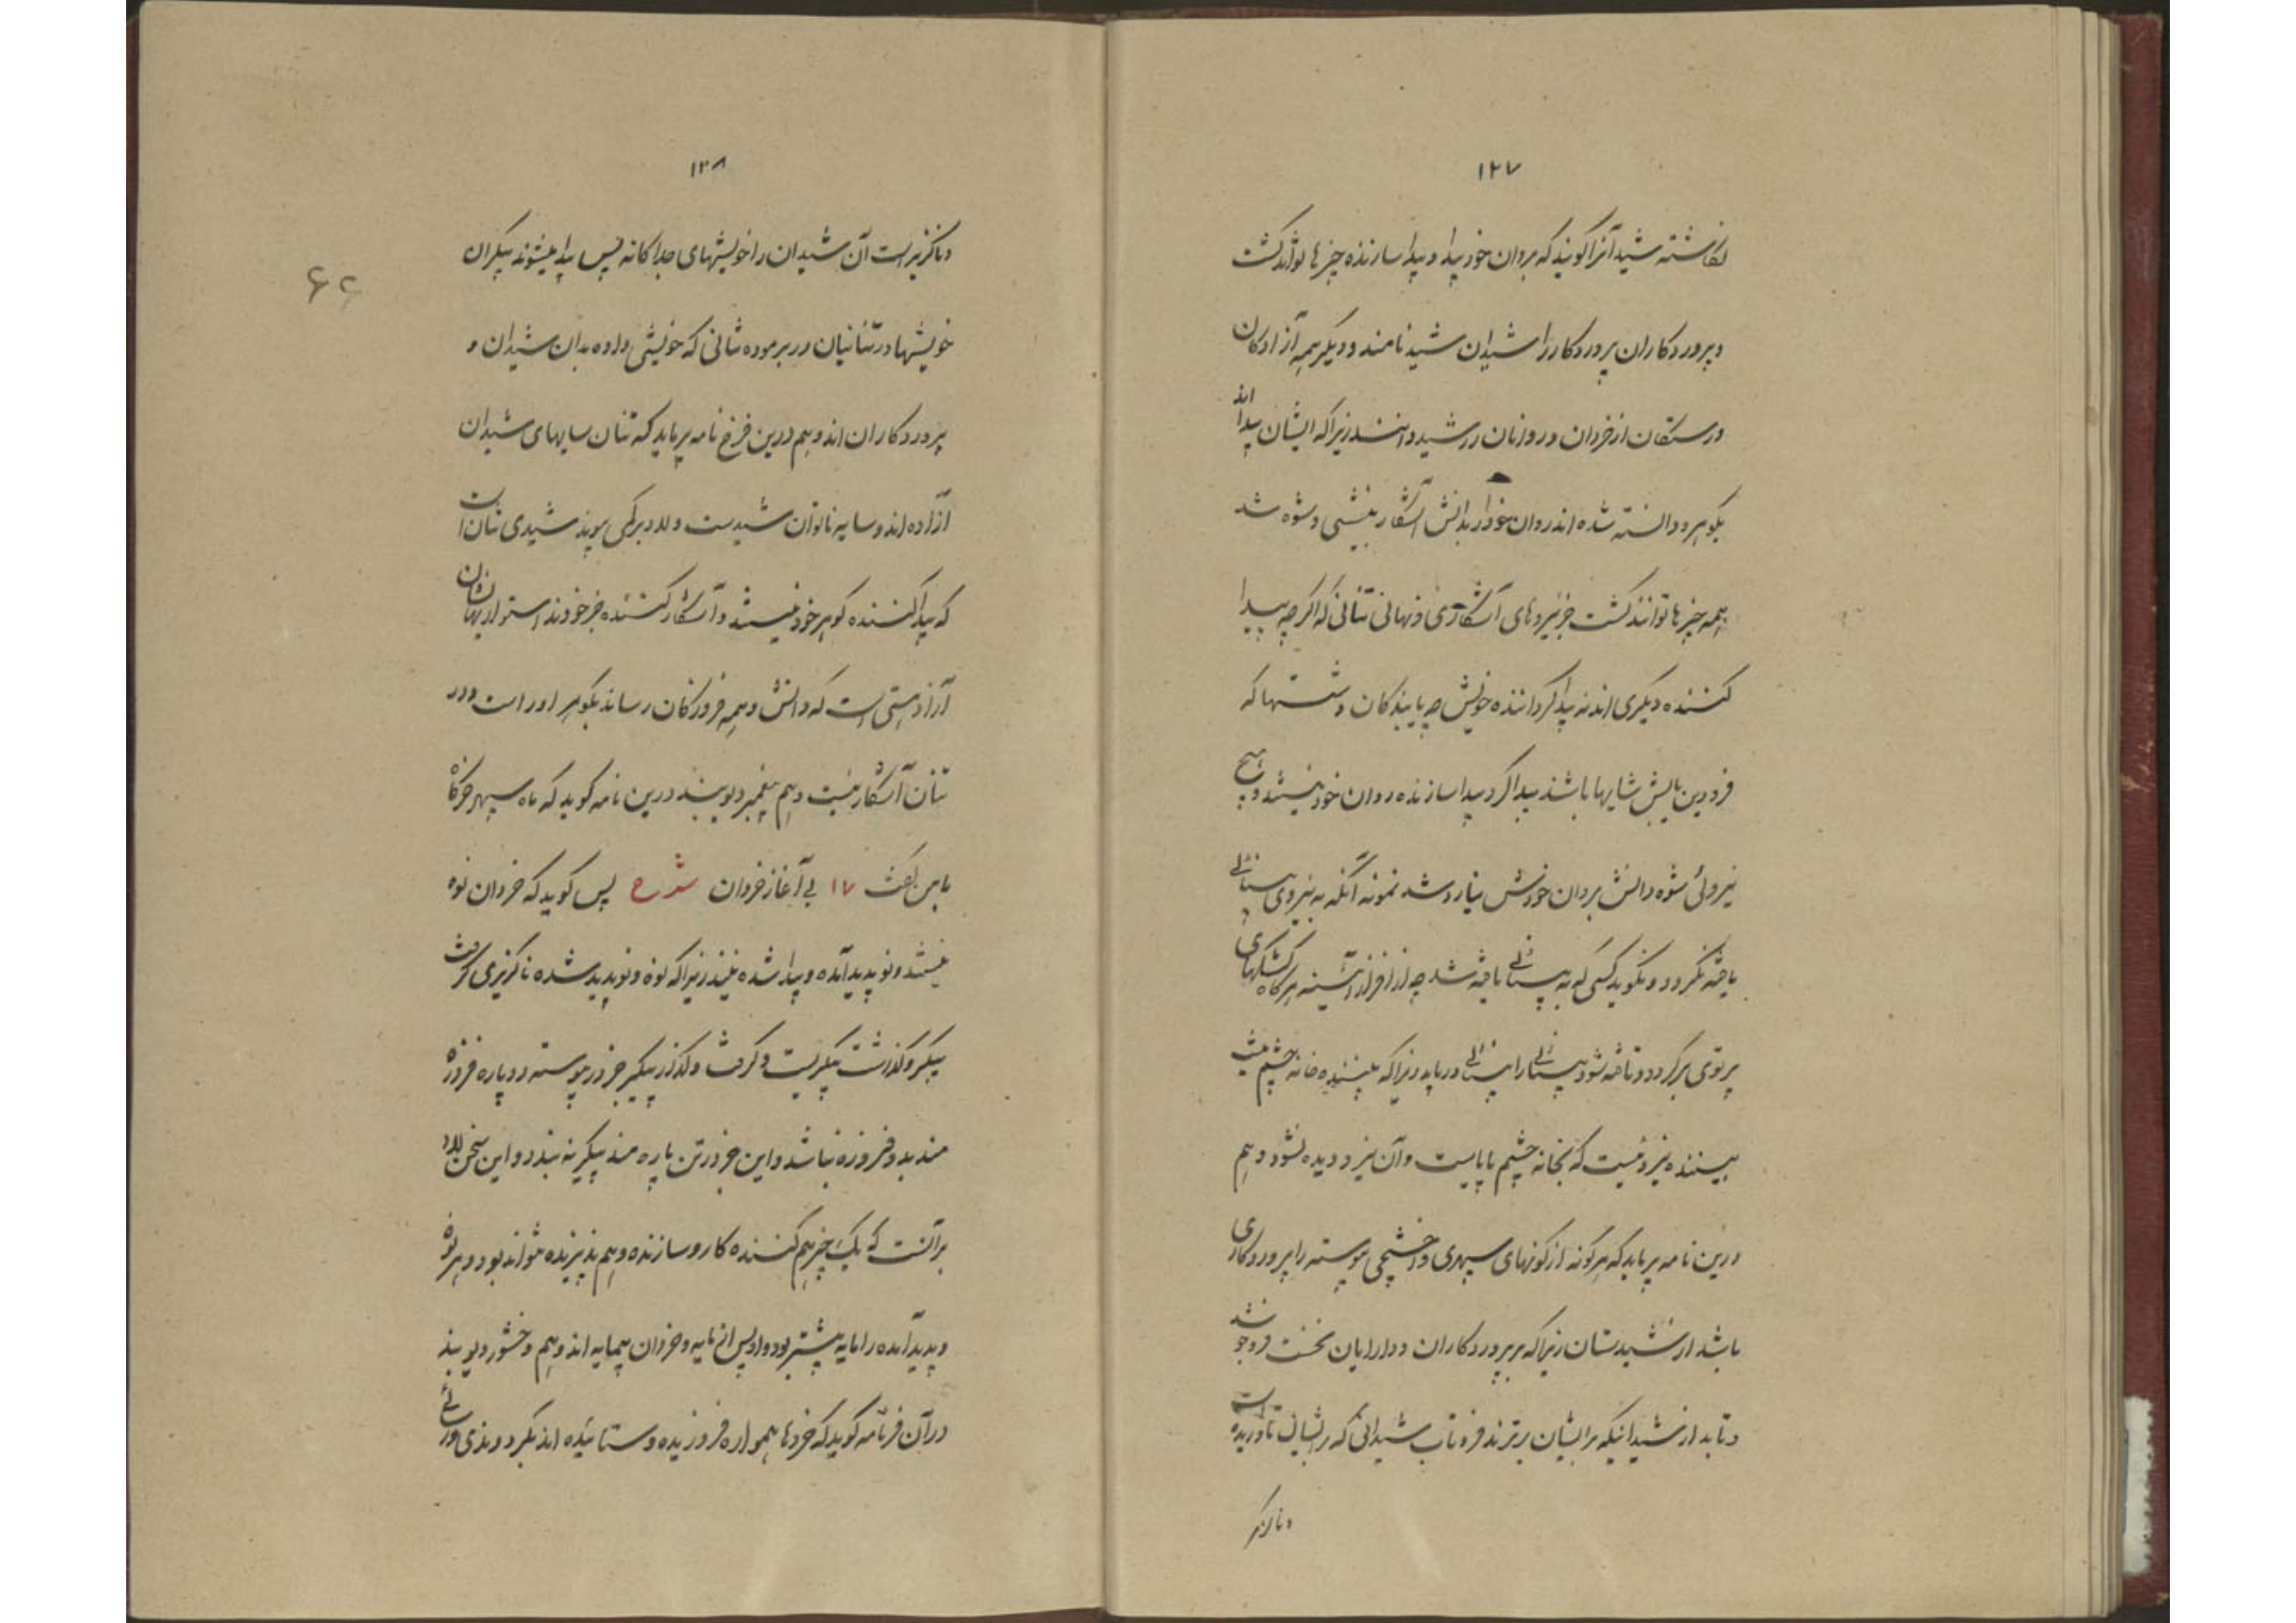 ۱۲۷
نکاشته شید آنرا کویند که بروان خود پیدا و پیدا سازنده چیزها تواند کشت
و پروردکاران پروردکار را شیدان شید نامند و دیکر همه آزادکان
و رستکان از خردان و روانان را شید دانند زیرا که ایشان پیدا اند
بکوهر و دانسته شده اند روان خود را بدانش آشکار بینشی و شوه شد
همه چیزها توانند کشت جز نیروهای آشکاری و نهانی تنانی که اکرچه پیدا
کننده دیکری اند نه پیدا کرداننده خویش چه یابندکان و شستها که
فرودین یابش شایها باشند پیدا کر و پیدا سازنده روان خود نیستند و هیچ
نیروئی شوه دانش بروان خودش نیارد شد نمونه آنکه به نیروی بینائی
یافته نکردد و نکوید کسی که به بینائی یافته شد چه از افراز آئینه هرکاه کشکهای
پرتوی برکردد و تافته شود بینائی را بینائی دریابد زیرا که بیننده خانه چشم نیست
بیننده نیرو نیست که بخانه چشم پاپاست و آن نیرو دیده نشود و هم
درین نامه پرماید که هر کونه از کونهای سپهری و اخشیجی پیوسته را پروردکاری
باشد از شیدستان زیرا که بر پروردکاران و دارایان نخست فروجوشد
و تابد از شیدانیکه بر ایشان برترند فره تاب شیدانی که بر ایشان تاوریده است
و ناکز
۱۲۸
و ناکزیر است آن شیدان را خویشهای جداکانه پس پیدا میشوند پیکران
خویشها در تنانیان در برموده تنانی که خویشی داده بدان شیدان و
پروردکاران اند و هم درین فرخ نامه پرماید که تنان سایهای شیدان
آزاده اند و سایه ناتوان شیدست و لاد برکی پوید شیدی تنان است
که پیدا کننده کوهر خود نیستند و آشکار کننده جز خودند استوار نهان شان
آزاد هستی است که دانش و همه فروزکان رساند بکوهر اور است و در
تنان آشکار نیست و هم پیغمبر دیوبند درین نامه کوید که ماه سپهر خرکاه
باین کفت ۱۷ بی آغاز خردان شرح پس کوید که خردان نوه
نیستند و نو پدید آمده و پیدا شده نیند زیرا که نوه و نو پدید شده ناکزیری کرفت
پیکر و کذاشت پیکریست و کرفت و کذار پیکر جز در پیوسته دو پاره فروزه
مند بد و فروزه نباشد و این جز در تن پاره مند پیکرینه نبدد و این سخن لاد
بر آنست که یک چیز هم کننده کار و سازنده و هم پذیرنده نتواند بود و هر نوه
و پدید آمده را مایه پیشتر بود و او پس از مایه و خردان بیمایه اند و هم وخشور دیوبند
در آن فرنامه کوید که خردها همواره فروزیده و ستائیده اند بکرد و ندی ورسائی
۶۴